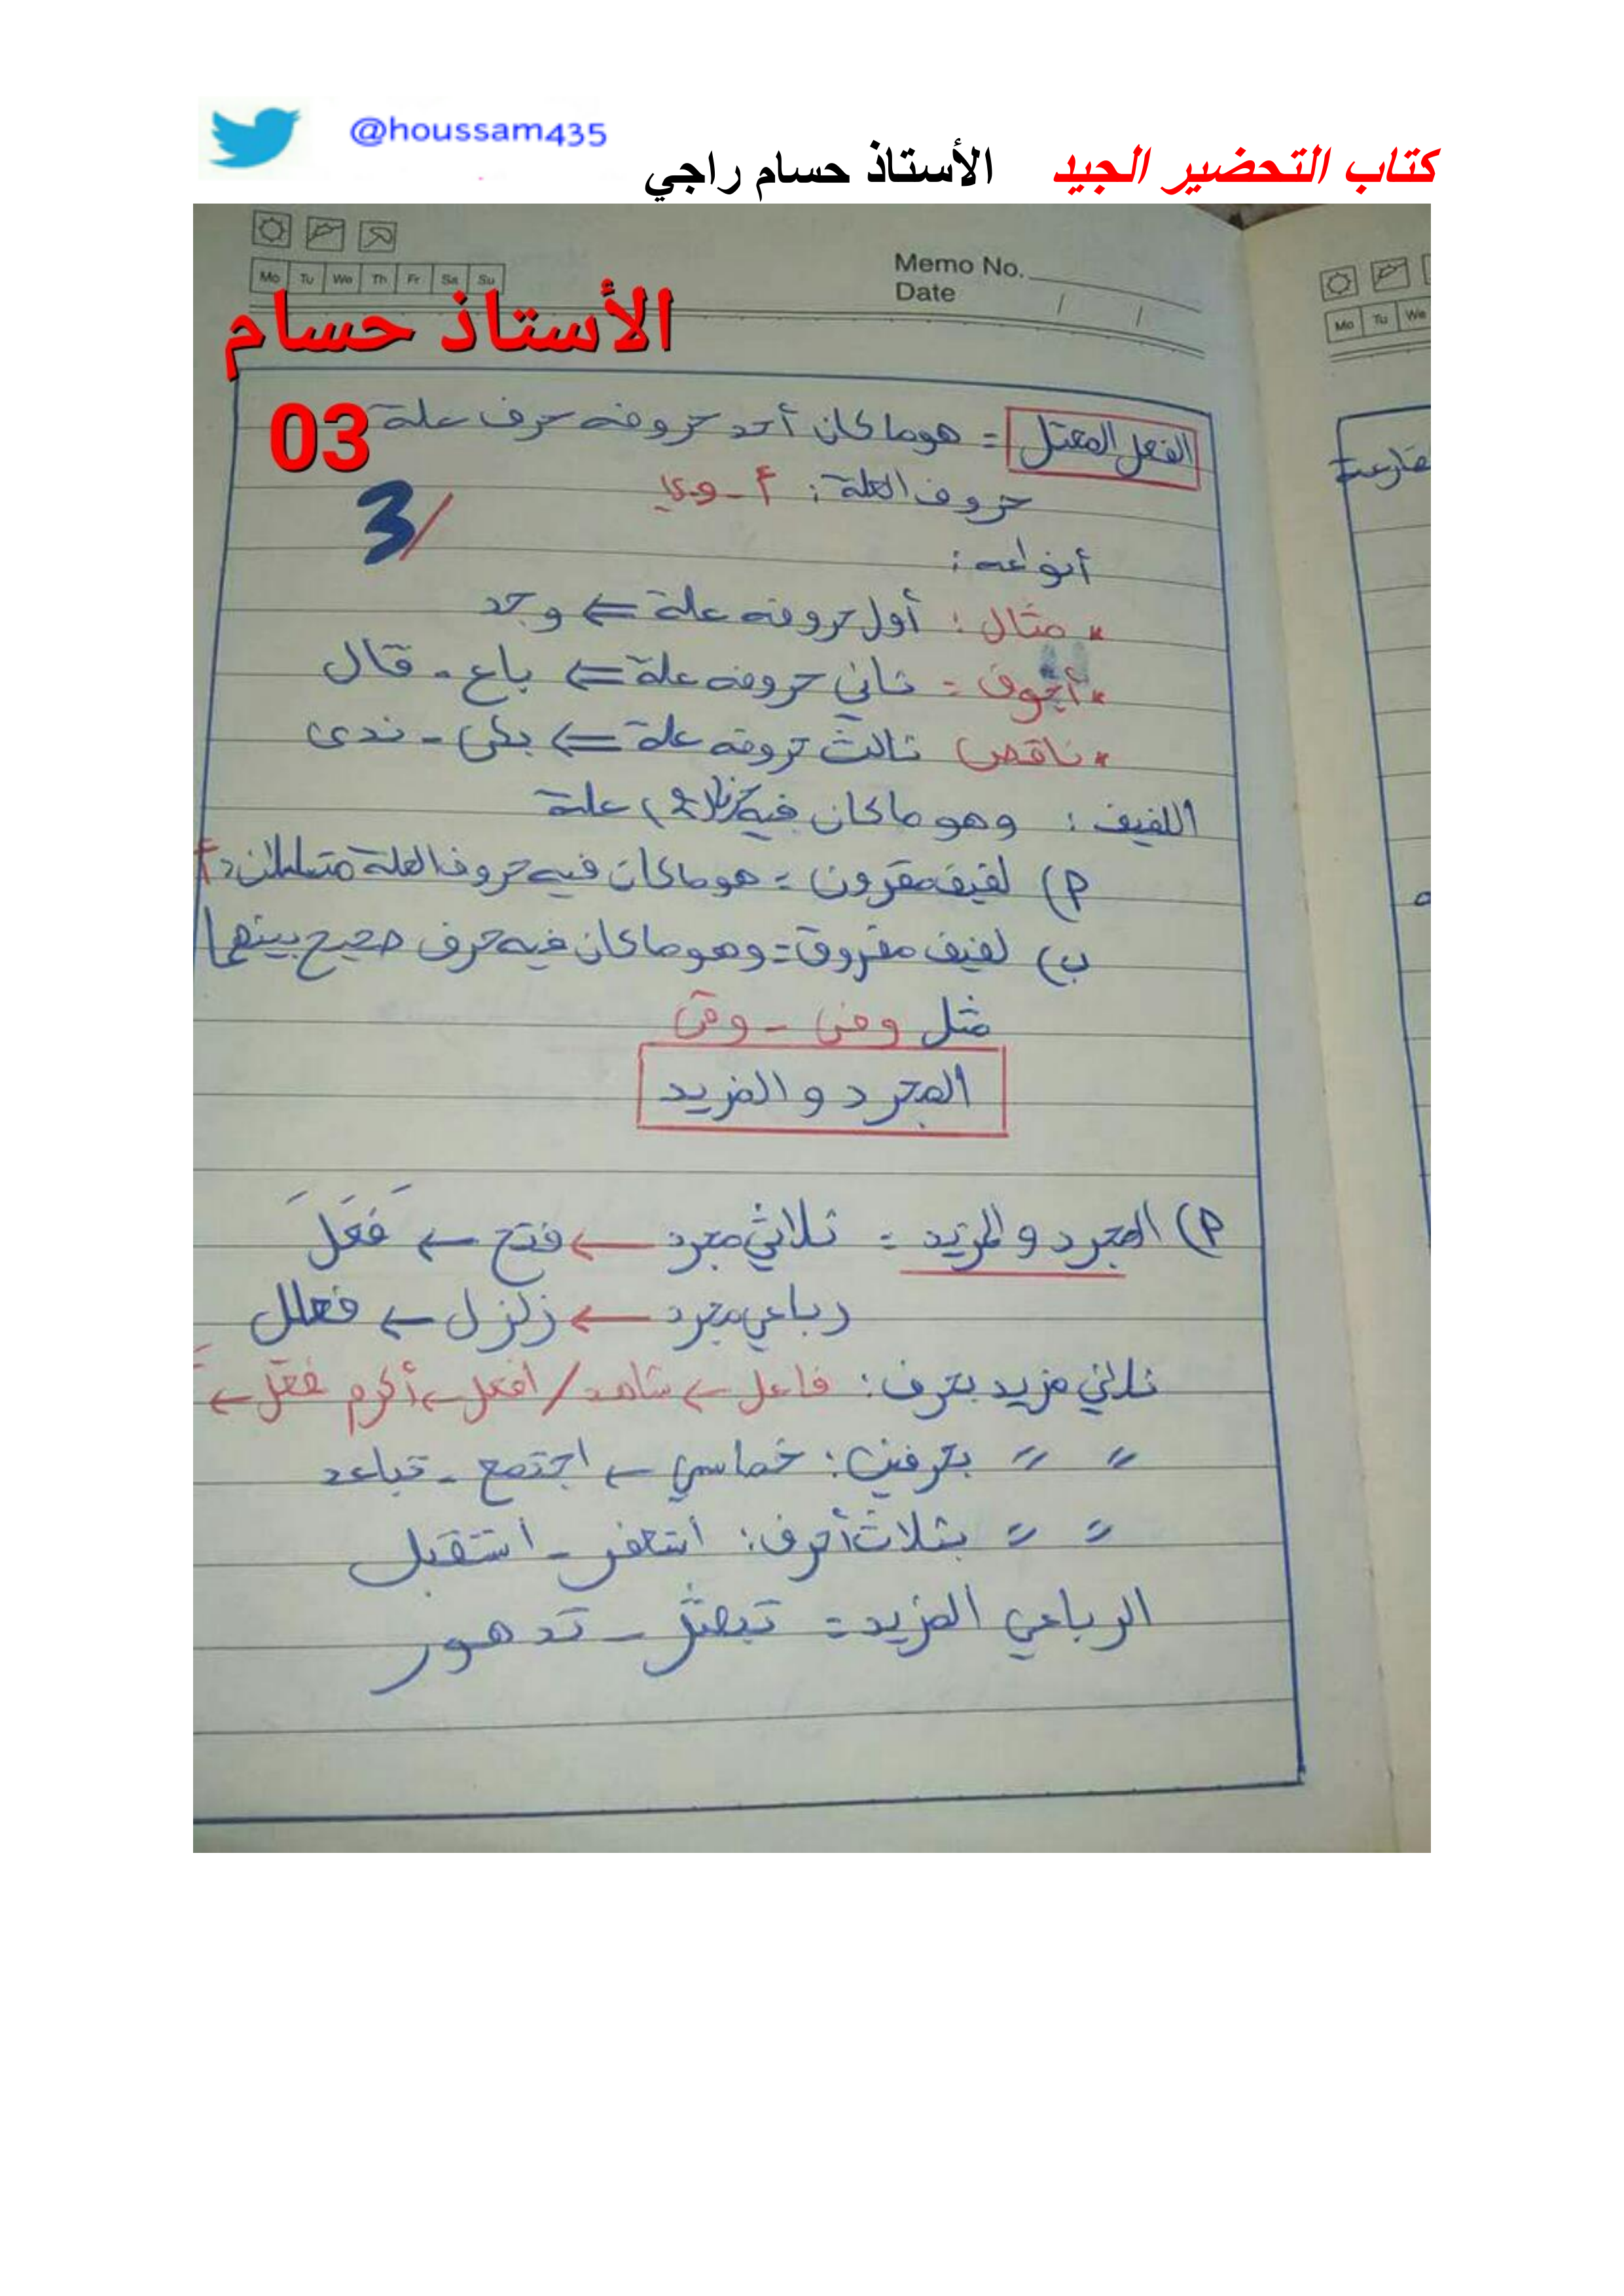 @houssam435
كتاب التحضير الجيد الأستاذ حسام راجي
Memo No.
Date
Mo Tu We Th Fr Sa Su
Mo Tu We
الأستاذ حسام
03
الفعل المعتل = هو ما كان أحد حروفه حرف علة
حروف العلة: أ - و ي
3/
أنواعه:
* مثال: أول حروفه علة ⇐ وجد
* أجوف = ثاني حروفه علة ⇐ باع - قال
* ناقص) ثالث حروفه علة ⇐ بكى - ندى
اللفيف: وهو ما كان فيه علة
أ) لفيف مقرون = هو ما كان فيه حروف العلة
ب) لفيف مفروق = وهو ما كان فيه حرف صحيح بينهما
مثل وفى - وقى
المجرد و المزيد
أ) المجرد و المزيد = ثلاثي مجرد ← فتح ← فَعَلَ
رباعي مجرد ← زلزل ← فعلل
ثلاثي مزيد بحرف: فاعل ← شاهد / أفعل ← أكرم فعّل ←
〃 〃 بحرفين: خماسي ← اجتمع - تباعد
〃 〃 بثلاث أحرف: استغفر - استقبل
الرباعي المزيد = تبعثر - تدهور